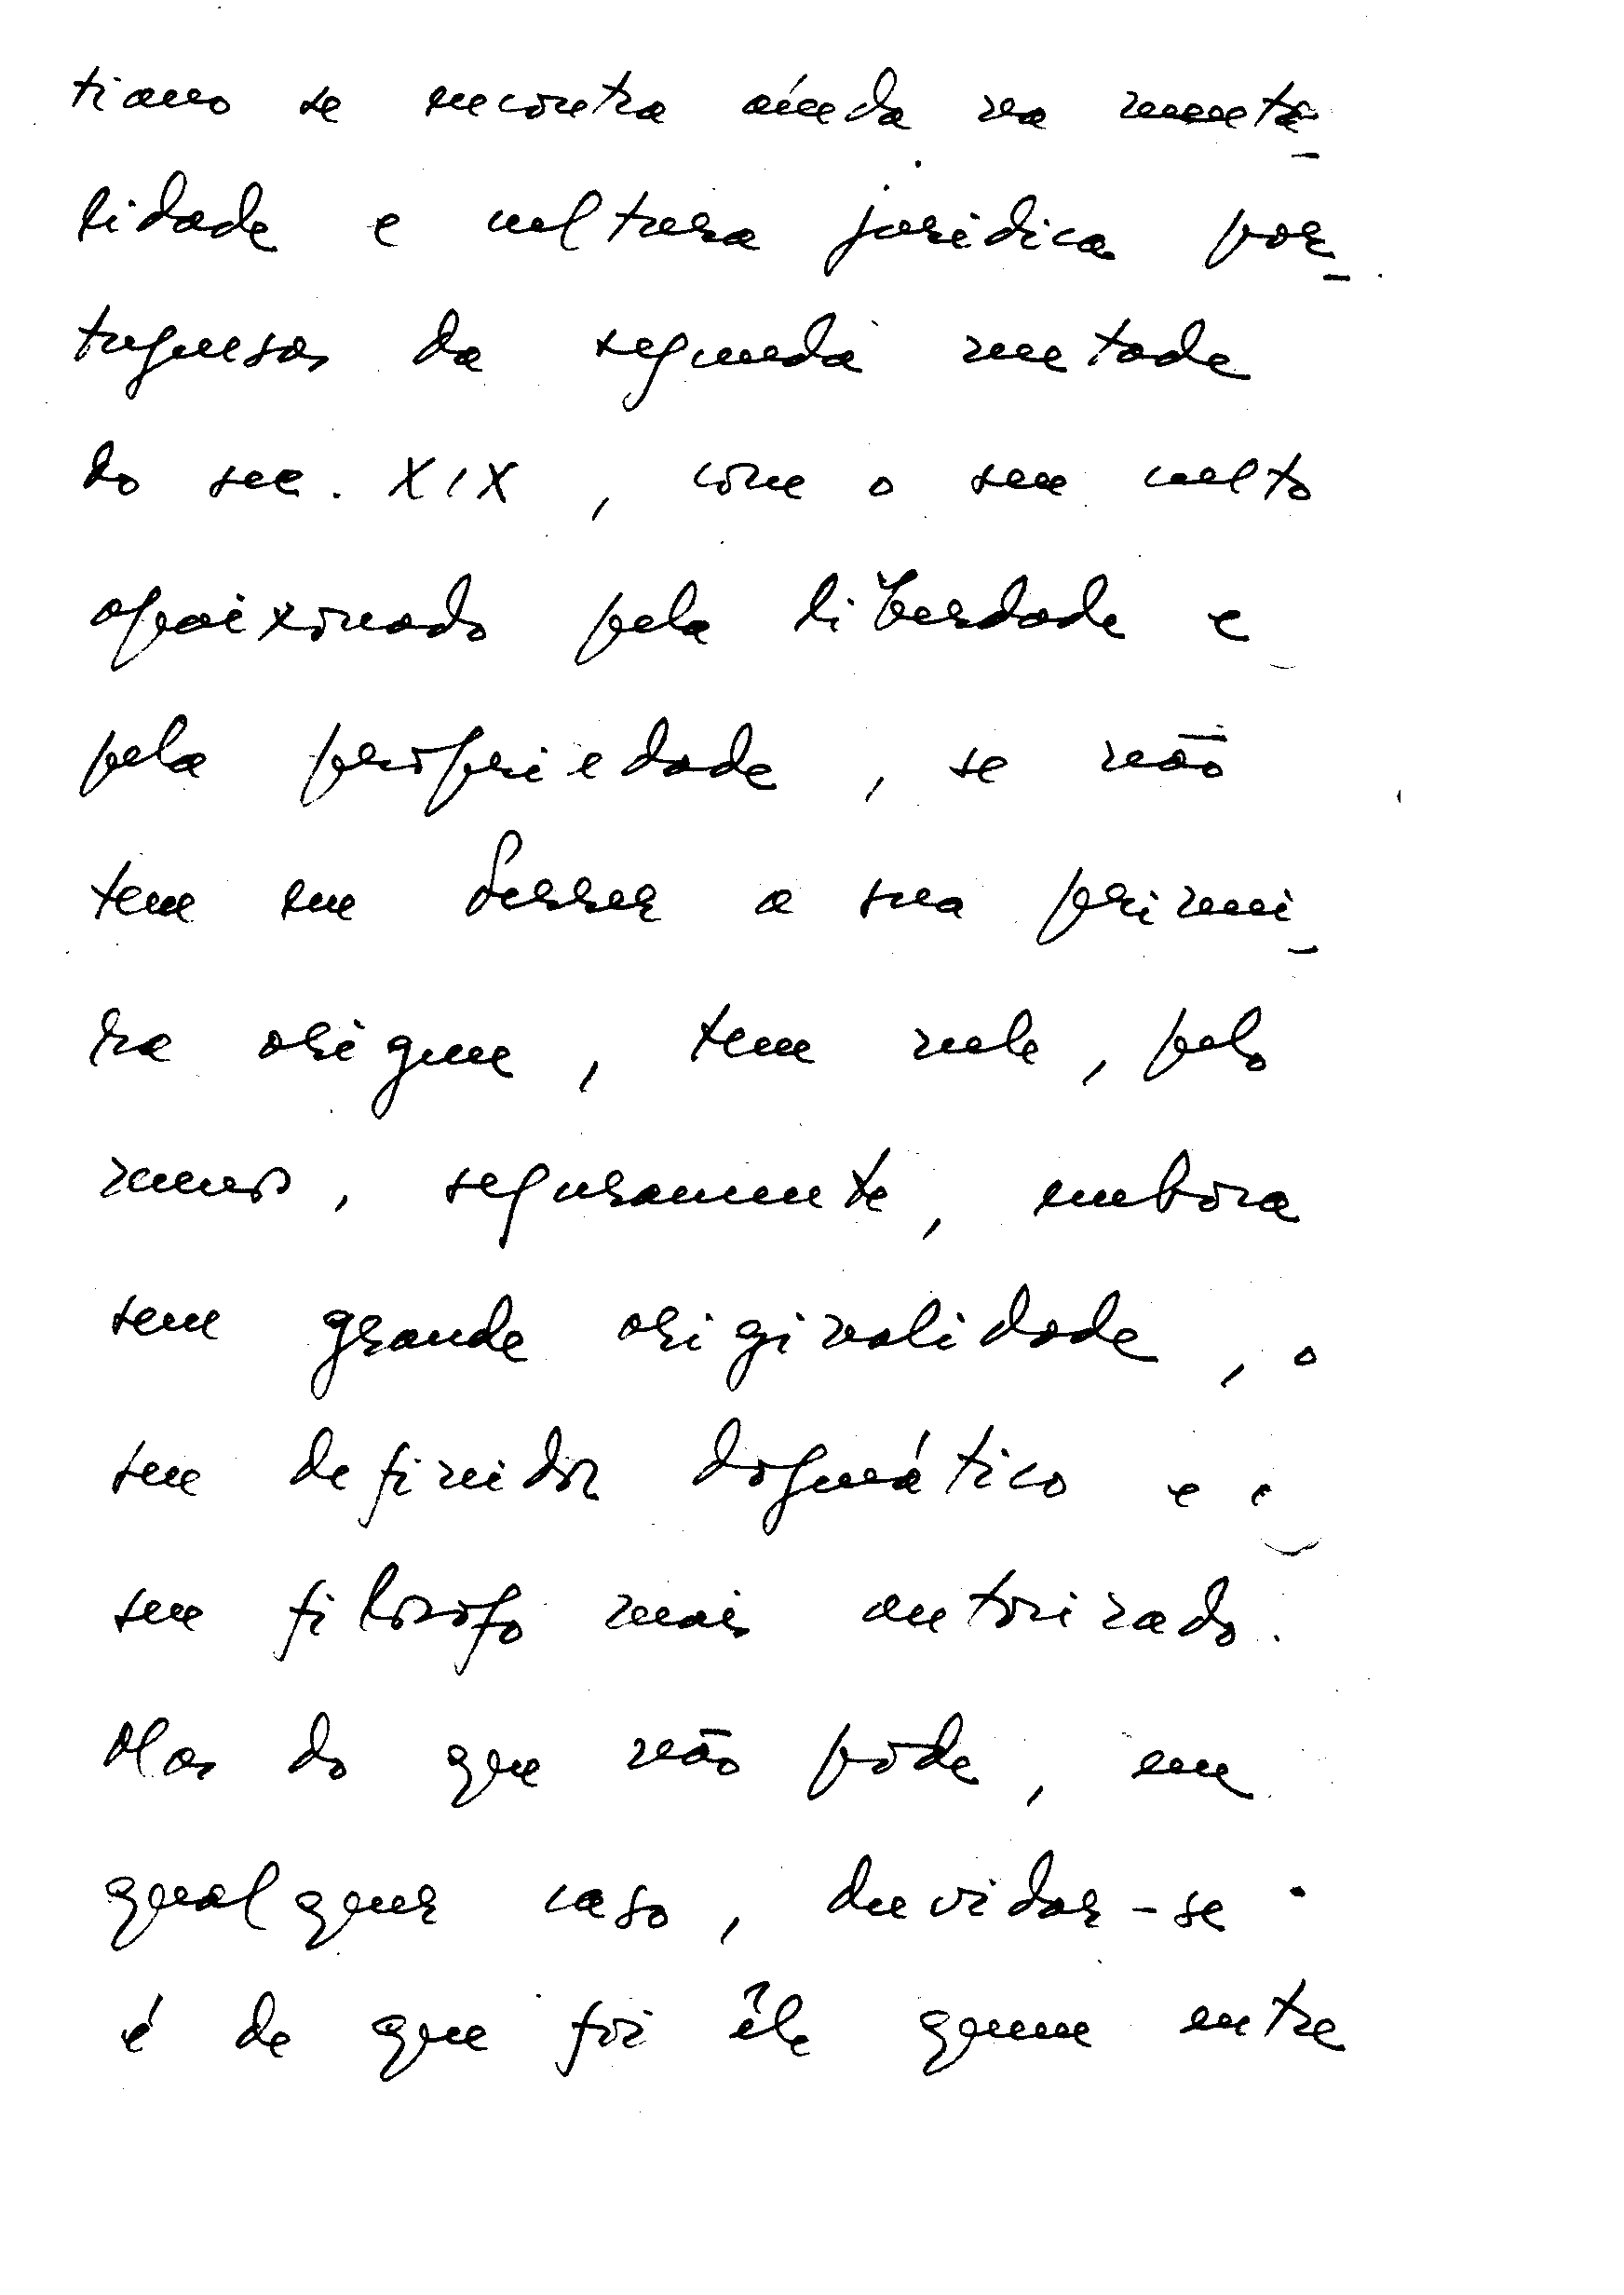 tiano se encontra aínda na menta-
lidade e cultura jurídica por-
tuguesas da segunda metade
do sec. XIX, com o seu culto
apaixonado pela liberdade e
pela propriedade, se não
tem em Ferrer a sua primei-
ra origem, tem nele, pelo
menos, seguramente, embora
sem grande originalidade, o
seu definidor dogmático e o
seu filosofo mais autorizado.
Mas do que não póde, em
qualquer caso, duvidar-se
é de que foi êle quem entre